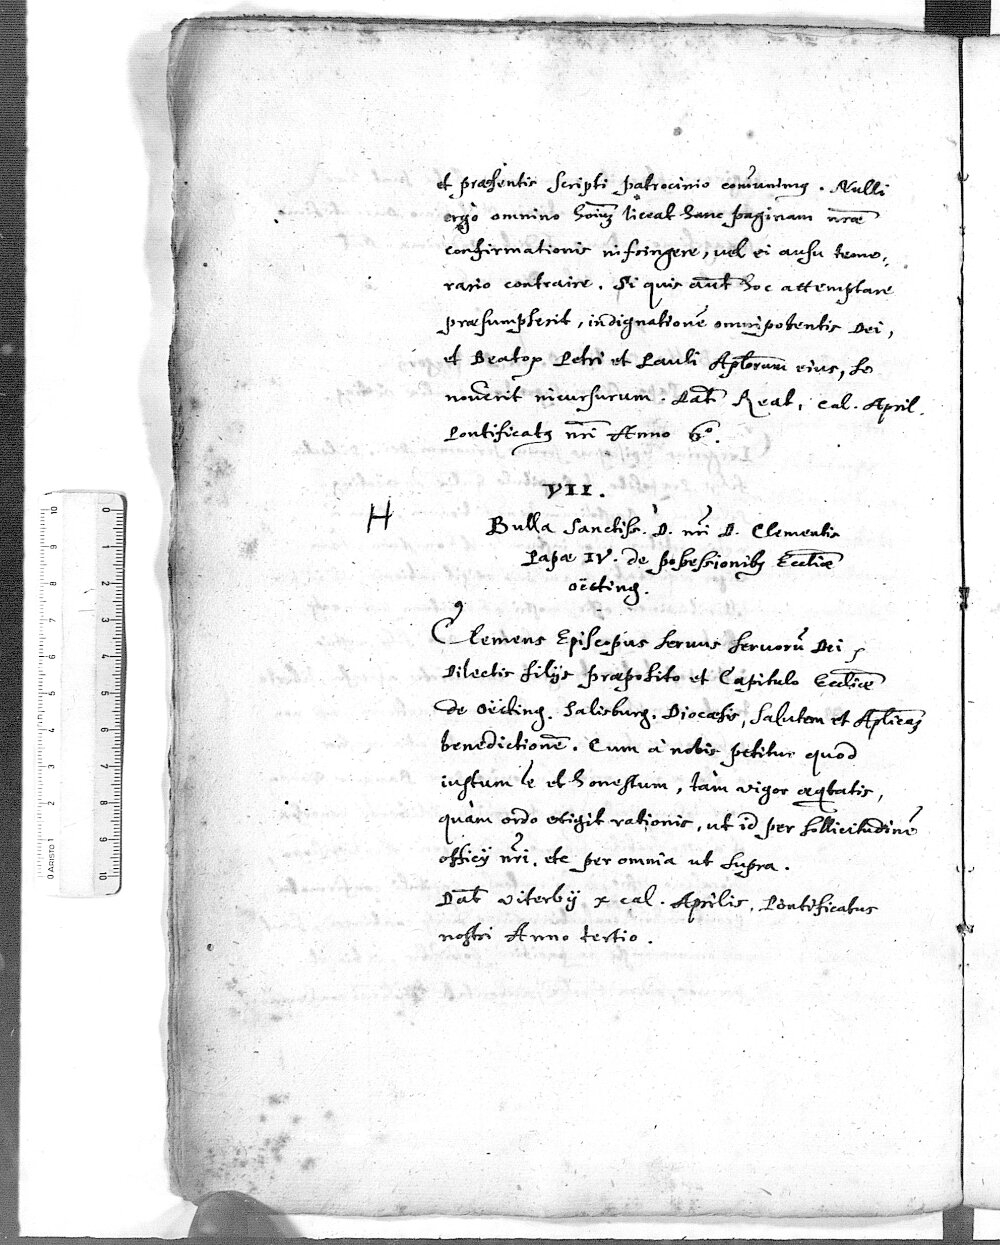 et præsentis scripti patrocinio com̄unimꝰ. Nulli
ergo omnino hoīuꝫ liceat hanc paginam nr̄æ
confirmationis infringere, uel ei ausu teme,
rario contraire. Si quis aūt hoc attemptare
præsumpserit, indignationē omnipotentis Dei,
et Beatoꝝ Petri et Pauli Apl̄orum eius, se
nouerit incursurum. Dat̄ Reat, cal. April.
Pontificatꝰ nr̄i Anno 6º.
VII.
H
Bulla Sanctiss. D. nr̄i D. Clementis
Papæ IV. de possessionibꝫ Eccl̄iæ
Oëting.
Clemens Episcopus seruus seruorū Dei,
Dilectis filijs præposito et Capitulo Eccl̄iæ
de Oëting. Salisburg. Diocæsis, salutem et Apl̄icaꝫ
benedictionē. Cum à nobis petitur quod
iustum ē et honestum, tàm vigor æqtatis,
quàm ordo exigit rationis, ut id per sollicitudinē
officij nr̄i, etc per omnia ut supra.
Dat̄ viterbij x cal. Aprilis, Pontificatus
nostri Anno tertio.
0 1 2 3 4 5 6 7 8 9 10
10 9 8 7 6 5 4 3 2 1 0
ARISTO